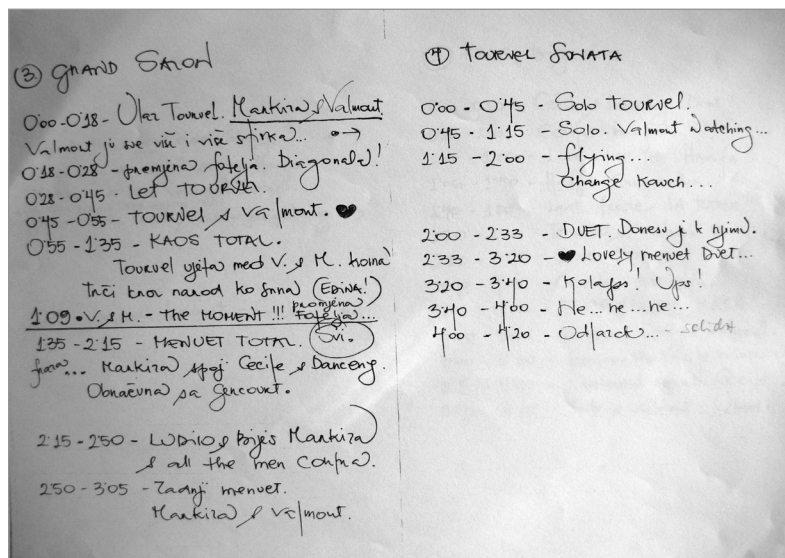 ③ GRAND SALON
0'00 - 0'18 - Ulaz Tourvel. Markiza & Valmont
Valmont ju sve više i više
0'18 - 0'28 - promjena fotelja. Diagonala!
0'28 - 0'45 - Let TOURVEL.
0'45 - 0'55 - TOURVEL & Valmont. ♥
0'55 - 1'35 - KAOS TOTAL.
Tourvel med V. & M.
Trči kroz narod ko (EDINA!)
1:09 • V. & M. - The MOMENT !!! promjena Fotelja...
1'35 - 2'15 - MENUET TOTAL. Svi.
Markiza spoji Cecile & Danceny.
Obračuna sa Gercourt.
2'15 - 2'50 - LUDILO & Bijes Markiza
& all the men
2'50 - 3'05 - Zadnji menuet.
Markiza & Valmont.
④ TOURVEL SONATA
0'00 - 0'45 - Solo TOURVEL.
0'45 - 1'15 - Solo. Valmont watching...
1'15 - 2'00 - flying...
change Kauch...
2'00 - 2'33 - DUET. Donesu ji k njimu.
2'33 - 3'20 - ♥ Lovely menuet Duet...
3'20 - 3'40 - Kolaps! Ups!
3'40 - 4'00 - He...ne...ne...
4'00 - 4'20 - Odlazak...